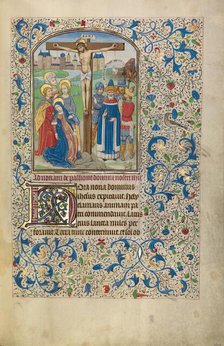 Ad nonam de passione domini nostri ihu
Hora nona dominus
ihesus expiravit. Hely
clamans animam pa
tri commendavit. Latus
eius lancea miles per
foravit. Terra tunc contremuit. et sol ob